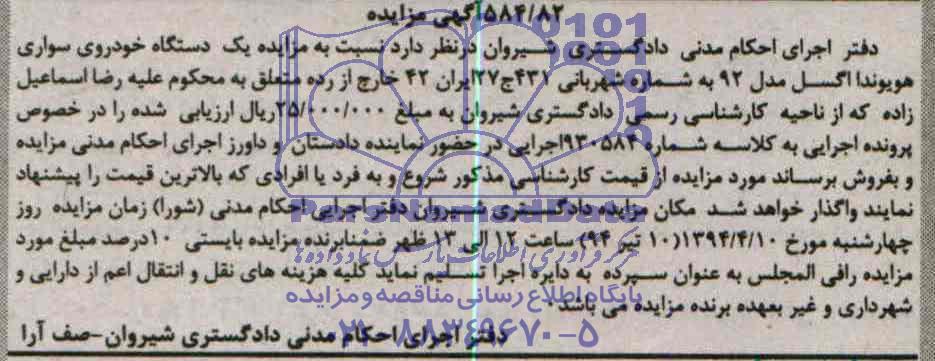 ۵۸۴/۸۲ آگهی مزایده
دفتر اجرای احکام مدنی دادگستری شیروان درنظر دارد نسبت به مزایده یک دستگاه خودروی سواری
هویوندا اکسل مدل ۹۲ به شماره شهربانی ۴۳۱ج۲۷ایران ۴۲ خارج از رده متعلق به محکوم علیه رضا اسماعیل
زاده که از ناحیه کارشناسی رسمی دادگستری شیروان به مبلغ ۲۵/۰۰۰/۰۰۰ریال ارزیابی شده را در خصوص
پرونده اجرایی به کلاسه شماره ۹۳۰۵۸۴اجرایی در حضور نماینده دادستان و داورز اجرای احکام مدنی مزایده
و بفروش برساند مورد مزایده از قیمت کارشناسی مذکور شروع و به فرد یا افرادی که بالاترین قیمت را پیشنهاد
نمایند واگذار خواهد شد مکان مزایده دادگستری شیروان دفتر اجرایی احکام مدنی (شورا) زمان مزایده روز
چهارشنبه مورخ ۱۳۹۴/۴/۱۰(۱۰ تیر ۹۴) ساعت ۱۲ الی ۱۳ ظهر ضمنابرنده مزایده بایستی ۱۰درصد مبلغ مورد
مزایده رافی المجلس به عنوان سپرده به دایره اجرا تسلیم نماید کلیه هزینه های نقل و انتقال اعم از دارایی و
شهرداری و غیر بعهده برنده مزایده می باشد.
دفتر اجرای احکام مدنی دادگستری شیروان-صف آرا
پایگاه اطلاع رسانی مناقصه و مزایده
۰۲۱-۸۸۳۴۹۶۷۰-۵